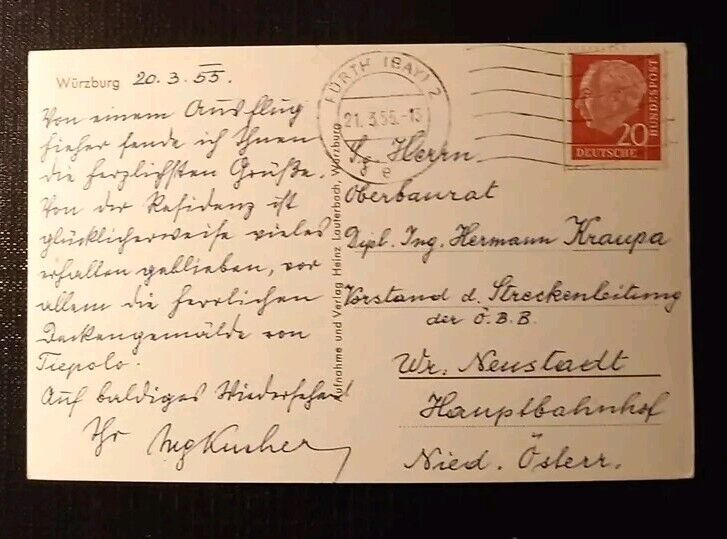 Würzburg 20.3.55.
Von einem Ausflug
hieher sende ich Ihnen
die herzlichsten Grüße.
Von der Residenz ist
glücklicherweise vieles
erhalten geblieben, vor
allem die herrlichen
Deckengemälde von
Tiepolo.
Auf baldiges Wiedersehen!
Ihr
Aufnahme und Verlag Heinz Lauterbach, Würzburg
FÜRTH (BAY) 2
21.3.55.-13
e
20
DEUTSCHE
BUNDESPOST
Sg. Herrn
Oberbaurat
Dipl. Ing. Hermann Kraupa
Vorstand d. Streckenleitung
der Ö.B.B.
Wr. Neustadt
Hauptbahnhof
Nied. Österr.